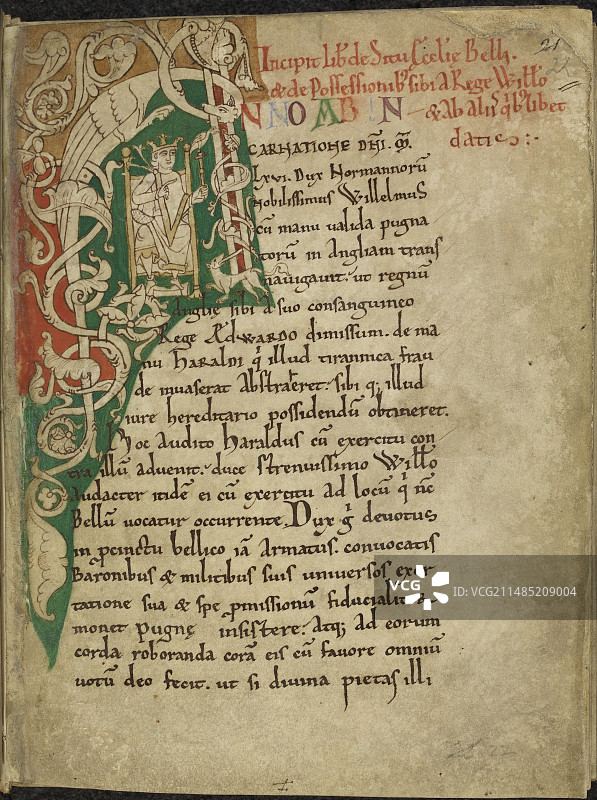 Incipit lib' de Situ Ecclię Belli.
& de Possessionib' sibi a Rege Willo
21
NNO AB IN — & ab aliis q'buslibet
datis :.
CARNATIONE DNI. M.
Lxvi. Dux Normannorū
nobilissimus Willelmus
cū manu valida pugna
torū in Angliam trans
navigavit. ut regnū
Anglie sibi a suo consanguineo
Rege Ædwardo dimissum. de ma
nu Haraldi q' illud tirannica frau
de invaserat abstraheret. sibi q; illud
iure hereditario possidendū obtineret.
Hoc audito Haraldus cū exercitu con
tra illū advenit. duce strenuissimo Willo
Audacter itidē ei cū exercitu ad locū q' nc̄
Bellū vocatur occurrente. Dux g' devotus
in p̄cinctu bellico iā armatus. convocatis
Baronibus & militibus suis universos exor
VCG
ID: VCG211485209004
tatione sua & spe p̄missionū fiducialit' a
monet pugnę insistere. Atq; ad eorum
corda roboranda corā eis cū favore omniū
votū deo fecit. ut si divina pietas illi